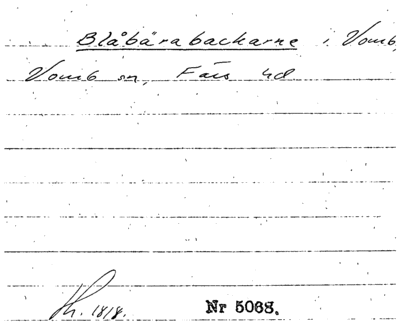 Blåbärabackarne i Vomb,
Vomb sn, Färs hd
1818.
Nr 5068.